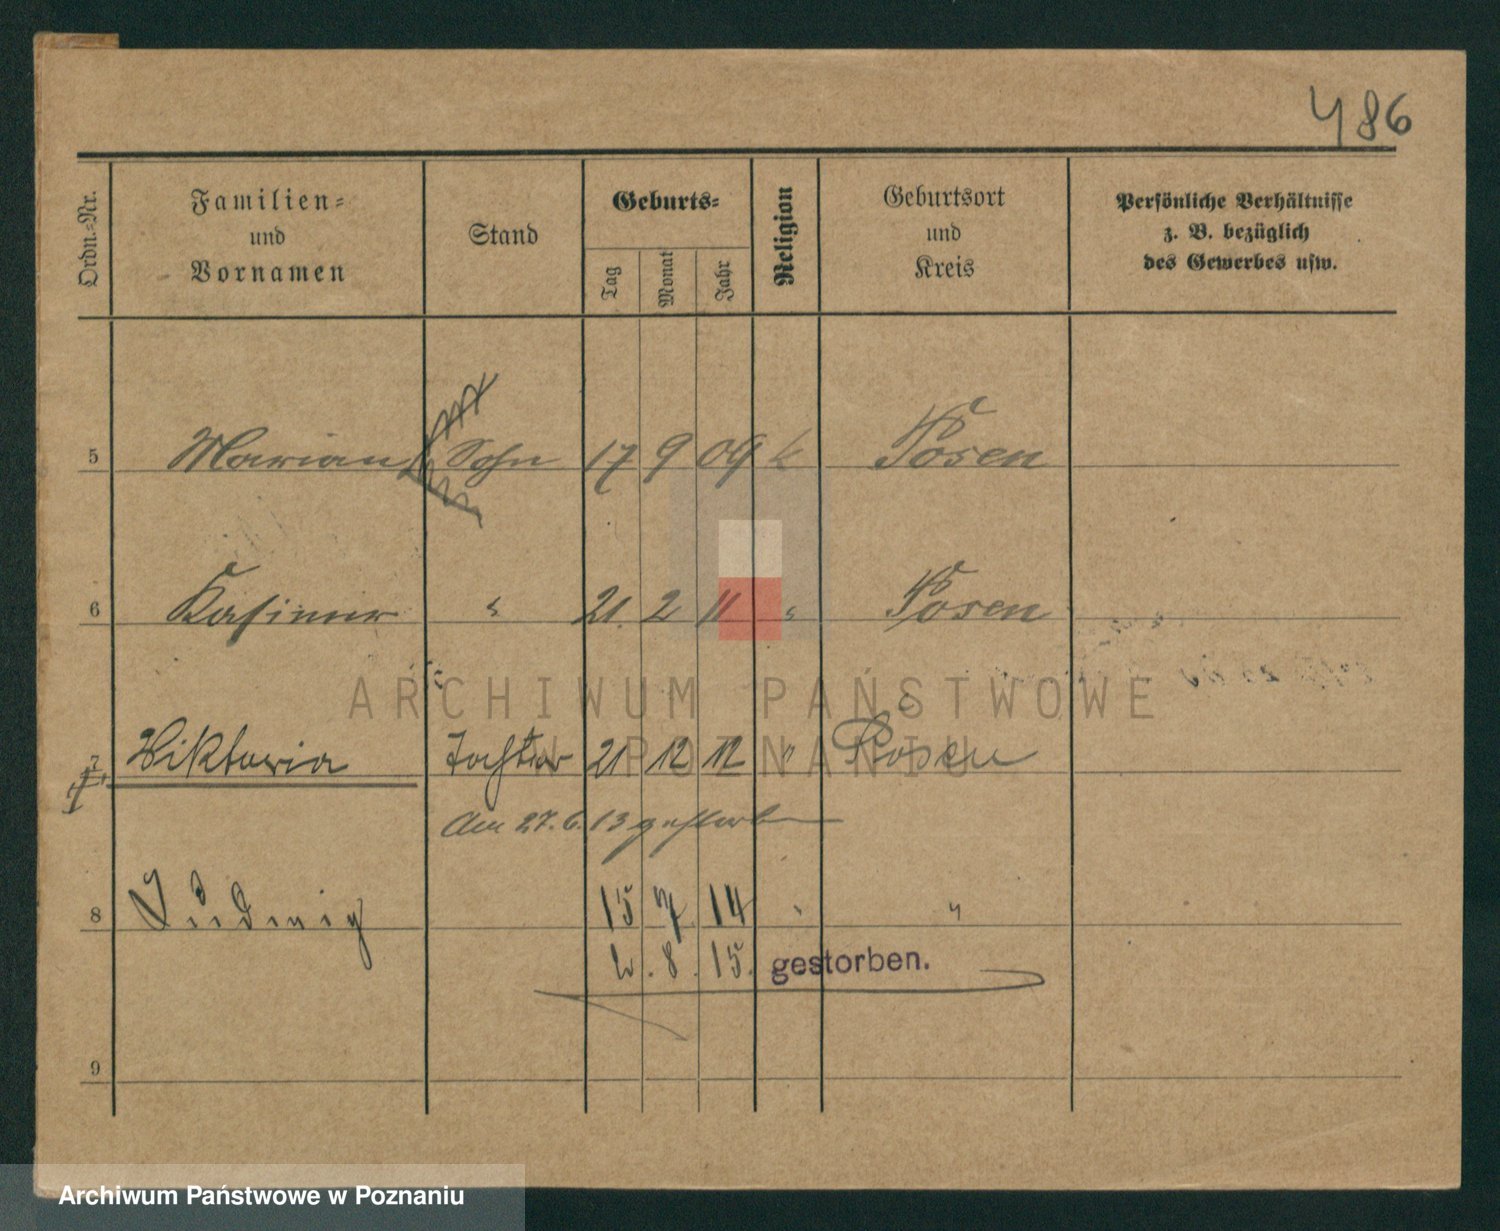 486
Ordn.=Nr.
Familien=
und
Vornamen
Stand
Geburts=
Tag
Monat
Jahr
Religion
Geburtsort
und
Kreis
Persönliche Verhältnisse
z. B. bezüglich
des Gewerbes usw.
5 Marian Sohn 17 9 09 k Posen
6 Kasimir " 21. 2 11 " Posen
ARCHIWUM PAŃSTWOWE
W POZNANIU
7 Wiktoria Tochter 21 12 12 " Posen
Am 27.6.13 gestorben
8 Ludwig 15 7 14 " "
8. 15. gestorben.
9
Archiwum Państwowe w Poznaniu